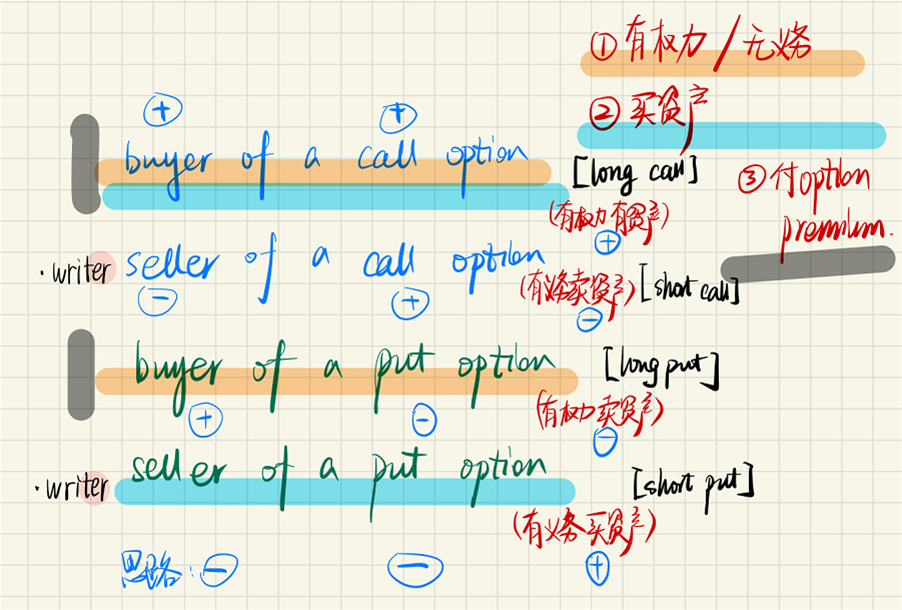 ① 有权力 / 无义务
② 买资产
⊕ ⊕
buyer of a call option [long call] ③ 付option
(有权力有资产) premium.
⊕
·writer seller of a call option (有义务卖资产) [short call]
⊖ ⊕ ⊖
buyer of a put option [long put]
⊕ ⊖ (有权力卖资产)
⊖
·writer seller of a put option [short put]
(有义务买资产)
思路: ⊖ ⊖ ⊕